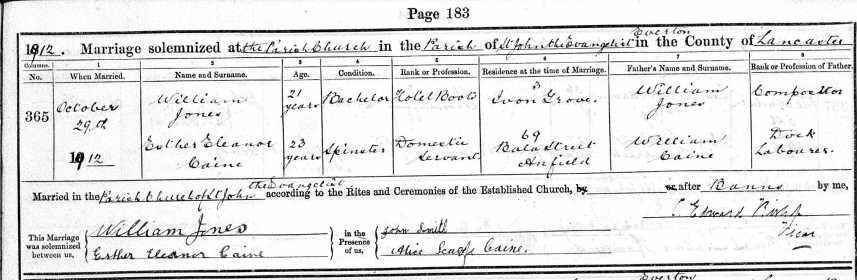 Page 183
1912. Marriage solemnized at the Parish Church in the Parish of St John the Evangelist Everton in the County of Lancaster
Columns. 1 2 3 4 5 6 7 8
No. When Married. Name and Surname. Age. Condition. Rank or Profession. Residence at the time of Marriage. Father's Name and Surname. Rank or Profession of Father.
365 October 29th 1912
William Jones 21 years Bachelor Hotel Boots 3 Ivon Grove. William Jones Compositor
Esther Eleanor Caine 23 years Spinster Domestic Servant 69 Bala Street Anfield William Caine Dock Labourer.
Married in the Parish Church of St John the Evangelist according to the Rites and Ceremonies of the Established Church, by or after Banns by me,
Edward Vicar
This Marriage was solemnized between us,
William Jones
Esther Eleanor Caine
in the Presence of us,
John Smith
Alice Caine.
Everton